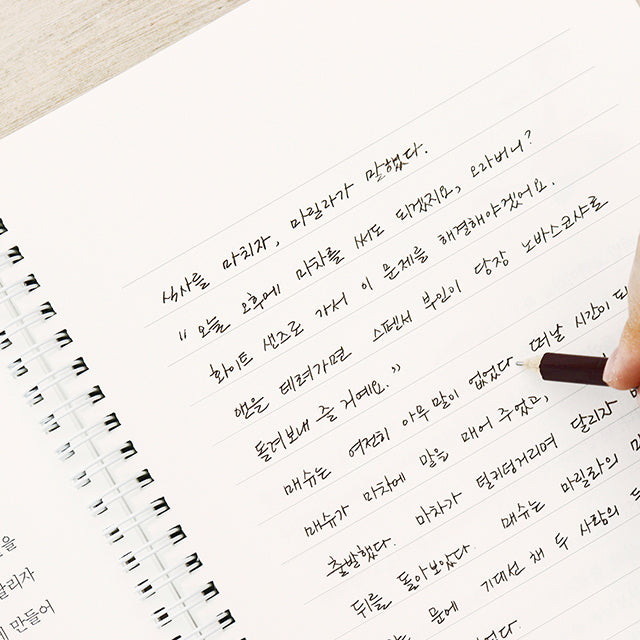 식사를 마치자, 마릴라가 말했다.
"오늘 오후에 마차를 써도 되겠지요, 오라버니?
화이트 샌즈로 가서 이 문제를 해결해야겠어요.
앤을 데려가면 스펜서 부인이 당장 노바스코샤로
돌려보내 줄 거예요."
매슈는 여전히 아무 말이 없었다. 떠날 시간이 되
매슈가 마차에 말을 매어 주었고,
출발했다. 마차가 덜커덩거리며 달리자
뒤를 돌아보았다. 매슈는 마릴라의
문에 기대선 채 두 사람의
을
달리자
만들어